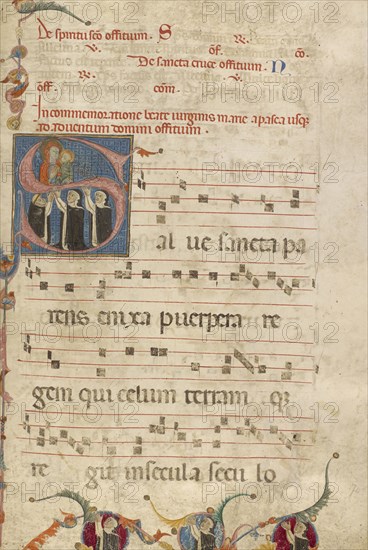 De spiritusco offitium. S
℟.
℣. off. co.
De sancta cruce offitium. N
℟. ℣.
off. com.
In commemoratione beate uirginis marie a pasca usq3
ad aduentum domini offitium.
al ue sancta pa
rens enixa puerpera re
gem qui celum terram q3
re git in secula secu lo